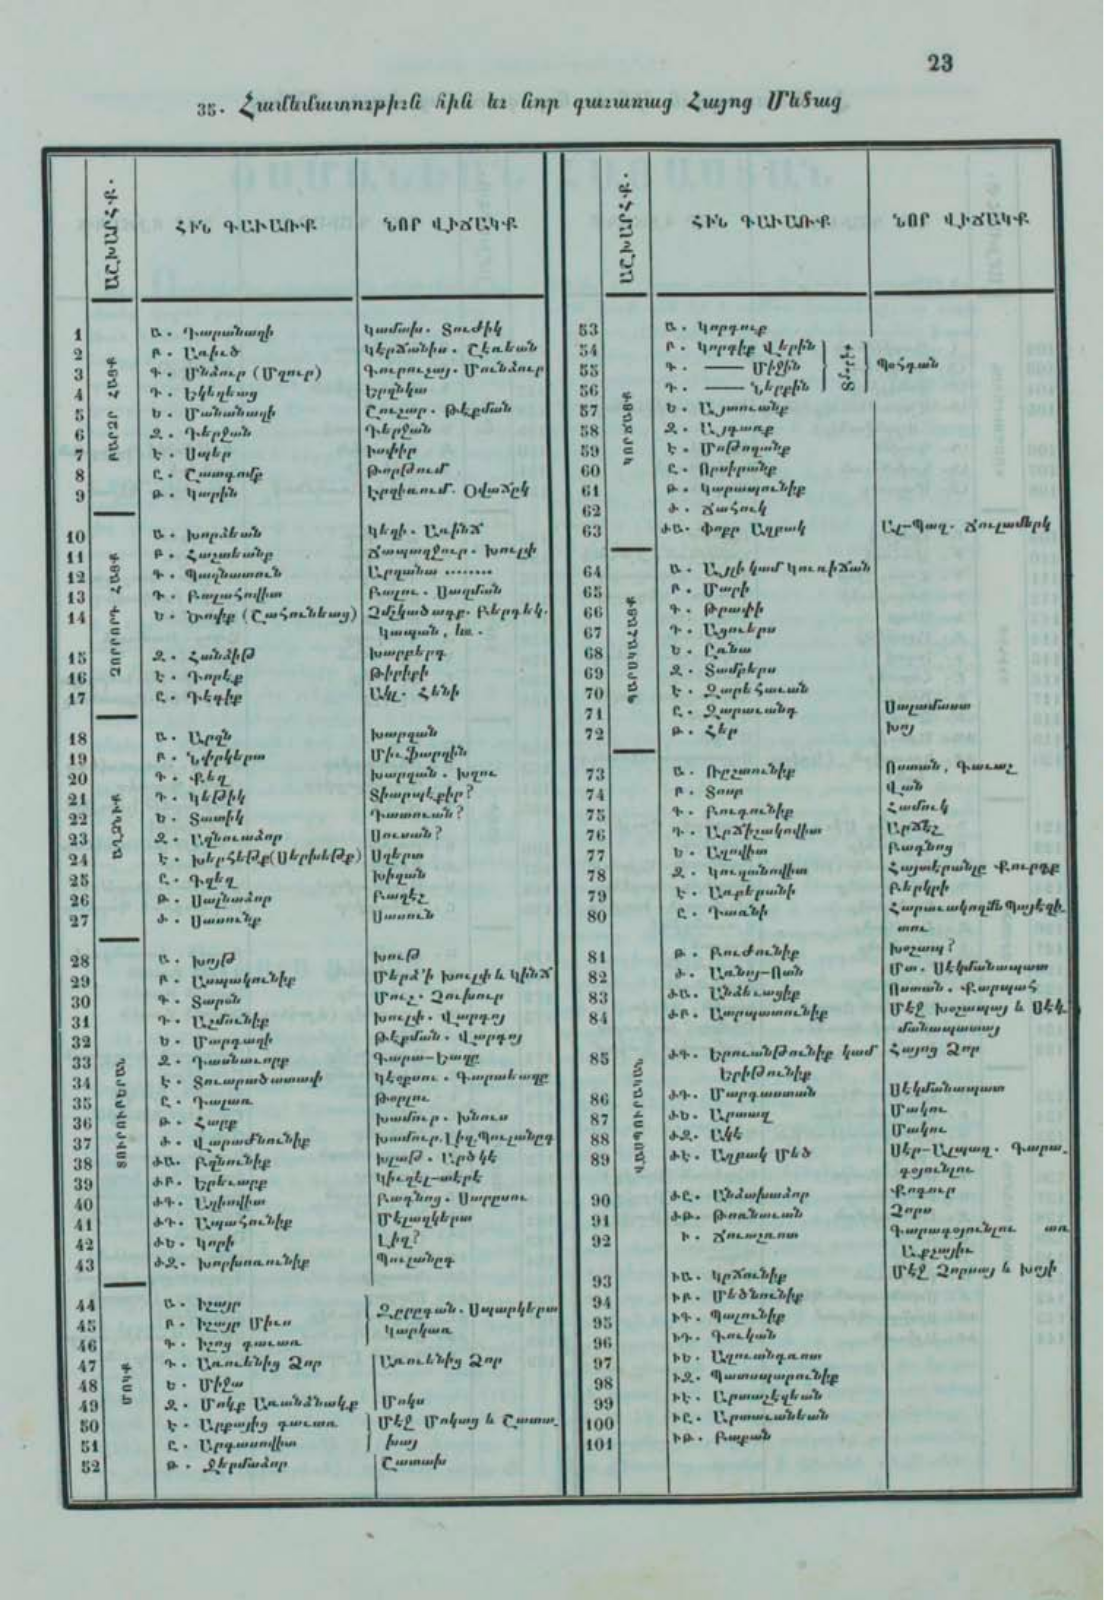 23
35. Համեմատութիւն հին եւ նոր գաւառաց Հայոց Մեծաց
ԱՇԽԱՐՀՔ.
ՀԻՆ ԳԱՒԱՌՔ
ՆՈՐ ՎԻՃԱԿՔ
ԲԱՐՁՐ ՀԱՅՔ
1 Ա. Դարանաղի Կամախ. Տուժիկ
2 Բ. Առիւծ Կերճանիս. Շէռեան
3 Գ. Մնձուր (Մզուր) Գուրուչայ. Մունձուր
4 Դ. Եկեղեաց Երզնկա
5 Ե. Մանանաղի Շուշար. Թէքման
6 Զ. Դերջան Դերջան
7 Է. Սպեր Իսփիր
8 Ը. Շատգոմք Թորթում
9 Թ. Կարին Էրզիռում. Օվաճըկ
ՉՈՐՐՈՐԴ ՀԱՅՔ
10 Ա. Խորձեան Կեղի. Առինճ
11 Բ. Հաշտեանք Ճապաղջուր. Խուլփ
12 Գ. Պաղնատուն Արղանա ........
13 Դ. Բալահովիտ Բալու. Սաղման
14 Ե. Ծոփք (Շահունեաց) Չմշկածագք. Բերդեկ.
Կապան, եւ.
15 Զ. Հանձիթ Խարբերդ
16 Է. Դորեք Թիրիքի
17 Ը. Դեգիք Ակլ. Հենի
ԱՂՁՆԻՔ
18 Ա. Արզն Խարզան
19 Բ. Նփրկերտ Միւֆարղին
20 Գ. Քեղ Խարզան. Խզու
21 Դ. Կեթիկ Տիարպէքիր?
22 Ե. Տատիկ Դատուան?
23 Զ. Ազնուաձոր Սուսան?
24 Է. Խերհեթք(Սերխեթք) Սղերտ
25 Ը. Գզեղ Խիզան
26 Թ. Սալնաձոր Բաղէշ
27 Ժ. Սասունք Սասուն
ՏՈՒՐՈՒԲԵՐԱՆ
28 Ա. Խոյթ Խութ
29 Բ. Ասպակունիք Մերձ ՛ի Խուլփ և Կինճ
30 Գ. Տարօն Մուշ. Չուխուր
31 Դ. Աշմունիք Խուլփ. Վարդոյ
32 Ե. Մարդաղի Թէքման. Վարդոյ
33 Զ. Դասնաւորք Գարա-Եազը
34 Է. Տուարածատափ Կէօքսու. Գարաեազը
35 Ը. Դալառ Թօրլու
36 Թ. Հարք Խամուր. Խնուս
37 Ժ. Վարաժնունիք Խամուր. Լիզ. Պուլանըգ
38 ԺԱ. Բզնունիք Խլաթ. Արծկէ
39 ԺԲ. Երեւարք Կիւղել-տերէ
40 ԺԳ. Աղիովիտ Բագնոց. Սարըսու
41 ԺԴ. Ապահունիք Մելազկերտ
42 ԺԵ. Կորի Լիզ?
43 ԺԶ. Խորխոռունիք Պուլանըգ
ՄՈԿՔ
44 Ա. Իշայր Զըրըգան. Սպարկերտ
45 Բ. Իշայր Միւս Կարկառ
46 Գ. Իշոց գաւառ
47 Դ. Առուենից Ձոր Առուենից Ձոր
48 Ե. Միջա
49 Զ. Մոկք Առանձնակք Մոկս
50 Է. Արքայից գաւառ Մէջ Մոկաց և Շատա-
51 Ը. Արգաստովիտ խայ
52 Թ. Ջերմաձոր Շատախ
ԱՇԽԱՐՀՔ.
ՀԻՆ ԳԱՒԱՌՔ
ՆՈՐ ՎԻՃԱԿՔ
ԿՈՐՃԱՅՔ
53 Ա. Կորդուք
54 Բ. Կորդիք Վերին
55 Գ. —— Միջին Պօհդան
56 Դ. —— Ներքին
57 Ե. Այտուանք
58 Զ. Այգառք
59 Է. Մոթողանք
60 Ը. Որսիրանք
61 Թ. Կարապունիք
62 Ժ. Ճահուկ
63 ԺԱ. Փոքր Աղբակ Ալ-Պաղ. Ճուլամերկ
ՊԱՐՍԿԱՀԱՅՔ
64 Ա. Այլի կամ Կուռիճան
65 Բ. Մարի
66 Գ. Թրափի
67 Դ. Ացուերս
68 Ե. Ըննա
69 Զ. Տամբերս
70 Է. Զարեհաւան
71 Ը. Զարաւանդ Սալամաստ
72 Թ. Հեր Խոյ
ՎԱՍՊՈՒՐԱԿԱՆ
73 Ա. Ռըշտունիք Ոստան, Գաւաշ
74 Բ. Տոսպ Վան
75 Գ. Բուգունիք Համուկ
76 Դ. Արճիշակովիտ Արճէշ
77 Ե. Աղովիտ Բագնոց
78 Զ. Կուղանովիտ Հայտերանլը Քուրդք
79 Է. Առբերանի Բերկրի
80 Ը. Դառնի Հարաւակողմն Պայէզի-
տու
81 Թ. Բուժունիք Խօշապ?
82 Ժ. Առնոյ-Ոտն Մտ. Սէկմանապատ
83 ԺԱ. Անձեւացիք Ոստան. Քարպահ
84 ԺԲ. Ատրպատունիք Մէջ Խօշապայ և Սէկ-
մանապատայ
85 ԺԳ. Երուանթունիք կամ Հայոց Ձոր
Երիթունիք
86 ԺԴ. Մարդաստան Սէկմանապատ
87 ԺԵ. Արտազ Մակու
88 ԺԶ. Ակէ Մակու
89 ԺԷ. Աղբակ Մեծ Սեր-Ալպաղ. Գարա-
գօյունլու
90 ԺԸ. Անձախաձոր Քոզուր
91 ԺԹ. Թոռնաւան Չորս
92 Ի. Ճուաշռոտ Գարագօյունլու առ
Աքչայիւ
93 ԻԱ. Կրճունիք Մէջ Չորսայ և Խոյի
94 ԻԲ. Մեծնունիք
95 ԻԳ. Պալունիք
96 ԻԴ. Գուկան
97 ԻԵ. Աղուանդռոտ
98 ԻԶ. Պատսպարունիք
99 ԻԷ. Արտաշէզեան
100 ԻԸ. Արտաւանեան
101 ԻԹ. Բաքան